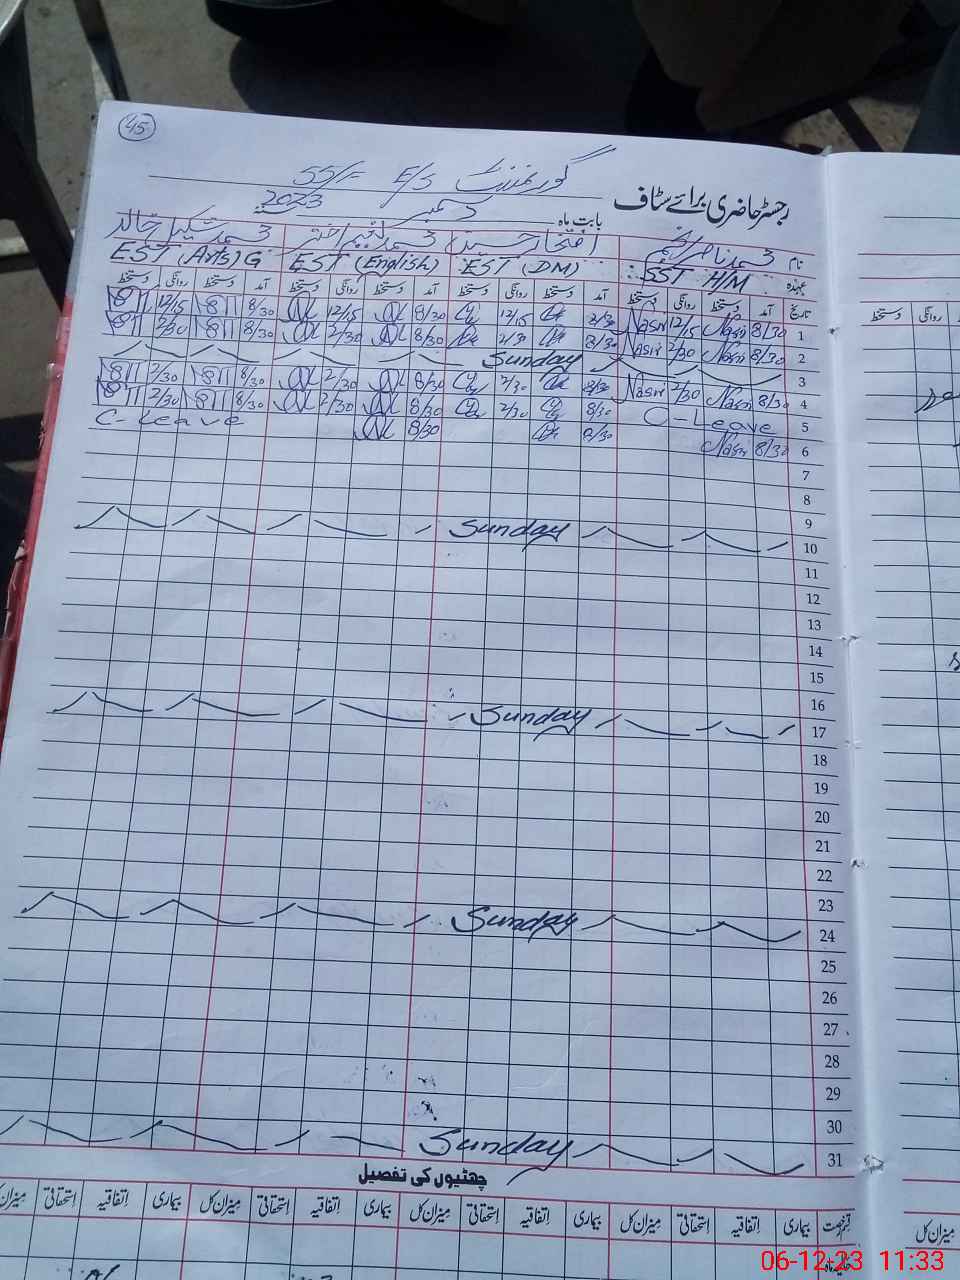 45
رجسٹر حاضری برائے سٹاف گورنمنٹ E/S 55/F
بابت ماہ دسمبر 2023
نام محمد ناصر افتخار حسین محمد اختر محمد شکیل خالد
عہدہ SST H/M EST (DM) EST (English) EST (Arts) G
تاریخ آمد دستخط روانگی دستخط آمد دستخط روانگی دستخط آمد دستخط روانگی دستخط آمد دستخط روانگی دستخط
1 8/30 Nasir 12/15 Nasir 8/30 12/15 8/30 12/15 8/30 12/15
2 8/30 Nasir 2/30 Nasir 8/30 2/30 8/30 2/30 8/30 2/30
3 Sunday
4 8/30 Nasir 2/30 Nasir 8/30 2/30 8/30 2/30 8/30 2/30
5 C-Leave 8/30 2/30 8/30 2/30 8/30 2/30
6 8/30 Nasir 8/30 8/30 C-Leave
7
8
9
10 Sunday
11
12
13
14
15
16
17 Sunday
18
19
20
21
22
23
24 Sunday
25
26
27
28
29
30
31 Sunday
چھٹیوں کی تفصیل
قسم رخصت بیماری اتفاقیہ استحقاقی میزان کل بیماری اتفاقیہ استحقاقی میزان کل بیماری اتفاقیہ استحقاقی میزان کل بیماری اتفاقیہ استحقاقی میزان کل
روانگی دستخط
میزان کل
06-12-23 11:33